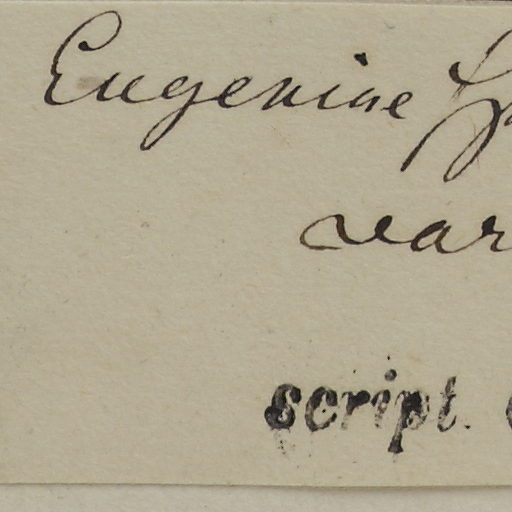 Eugenine
var
script.